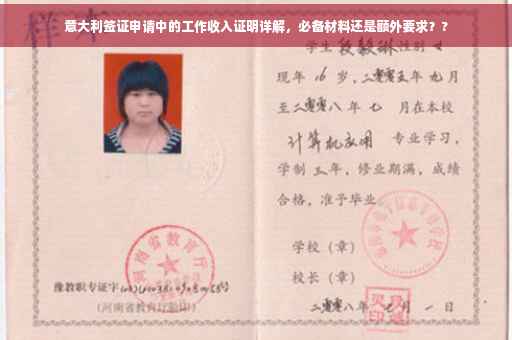 意大利签证申请中的工作收入证明详解，必备材料还是额外要求？？
样本
学生 段毅琳 性别 女
现年 16 岁，二零零五年 九月
至二零零八年 七 月在本校
计算机应用 专业学习，
学制 三年，修业期满，成绩
合格，准予毕业
学校（章）
校长（章）
二零零八年 七月 一日
河南省教育厅
豫教职专证字
（河南省教育厅验印）